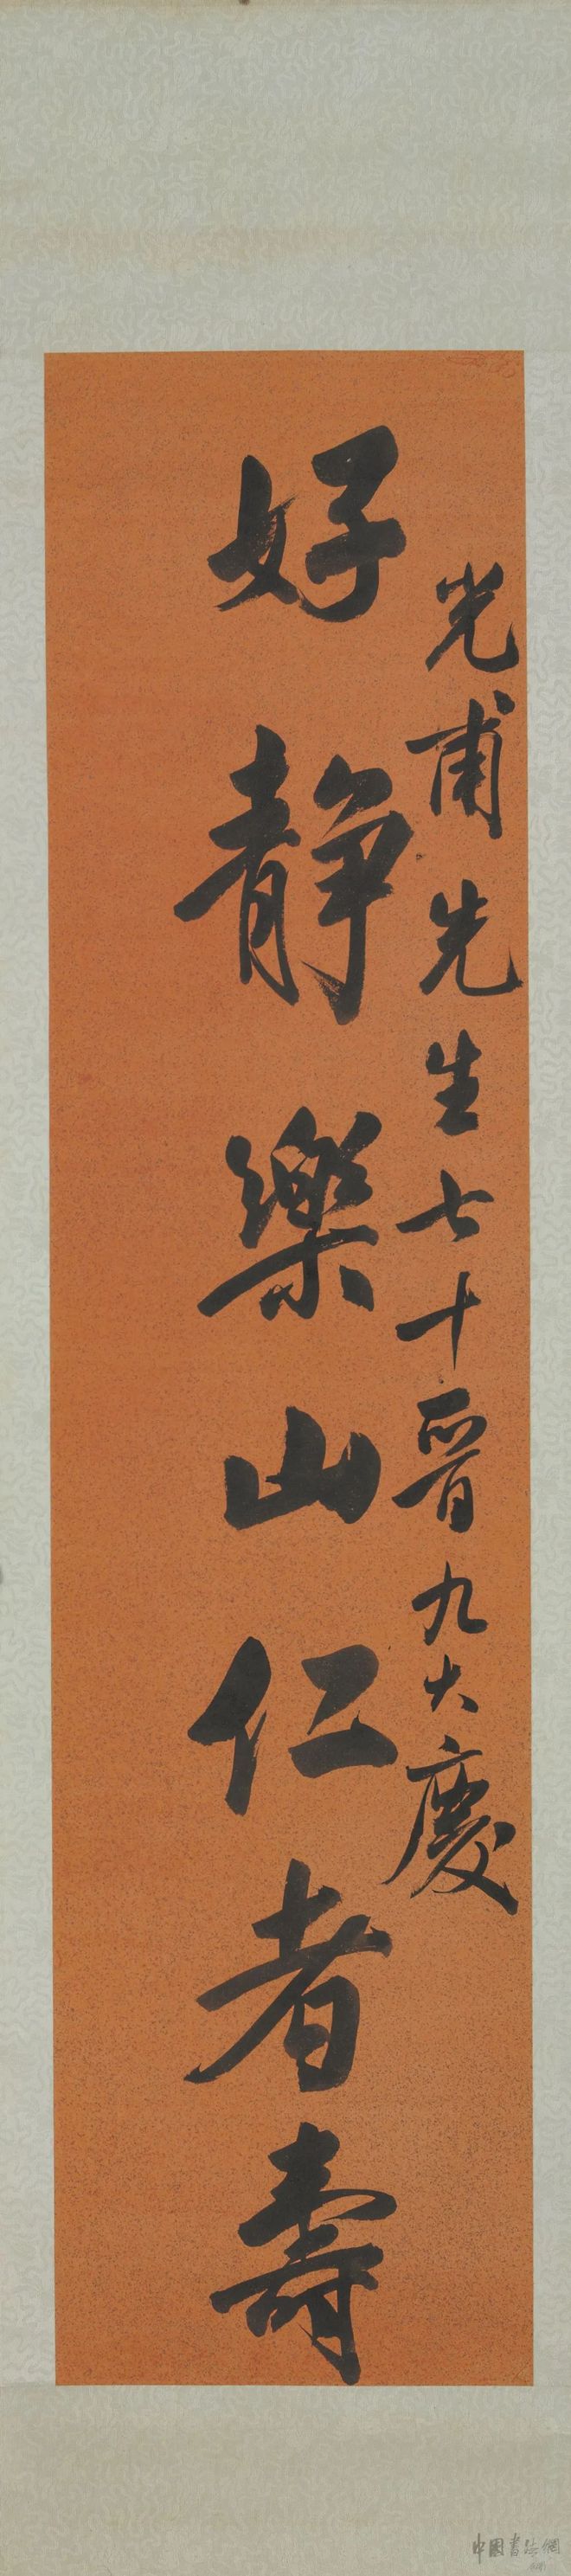 光甫先生七十晉九大慶
好靜樂山仁者壽
中國書法網